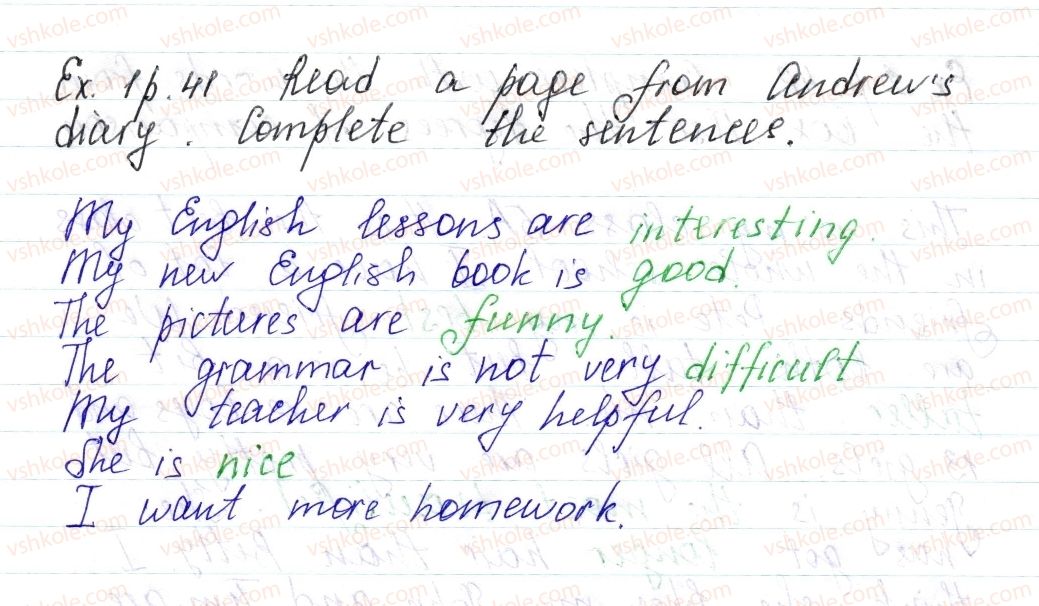 Ex. 1 p. 41 Read a page from Andrew's
diary. Complete the sentences.
My English lessons are interesting.
My new English book is good.
The pictures are funny.
The grammar is not very difficult
My teacher is very helpful.
She is nice
I want more homework.